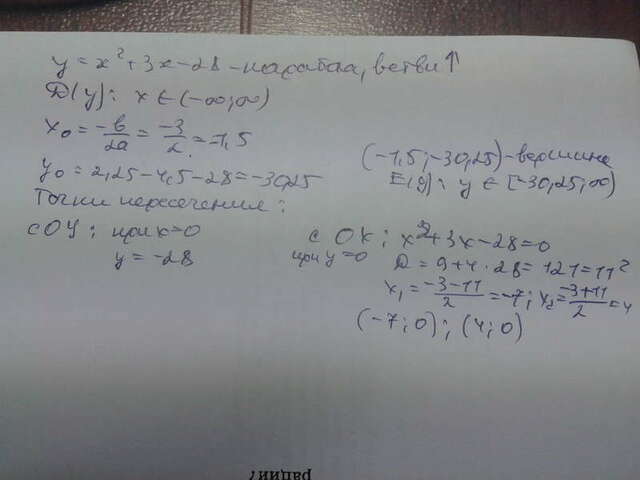 y = x² + 3x - 28 - парабола, ветви ↑
D(y): x ∈ (-∞; ∞)
x₀ = -b/2a = -3/2 = -1,5
y₀ = 2,25 - 4,5 - 28 = -30,25
(-1,5; -30,25) - вершина
E(y): y ∈ [-30,25; ∞)
Точки пересечения:
с OY: при x=0
y = -28
с OX: x² + 3x - 28 = 0
при y=0
D = 9 + 4 · 28 = 121 = 11²
x₁ = -3-11/2 = -7; x₂ = -3+11/2 = 4
(-7; 0); (4; 0)
рации?